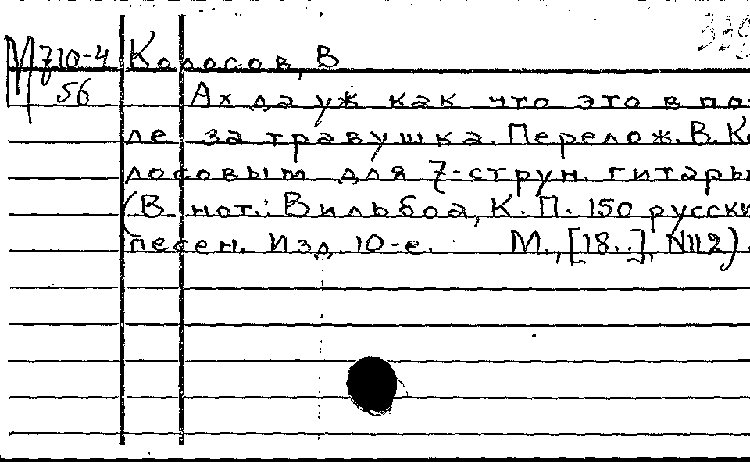 339
М 710-4 Колосов, В
56 Ах да уж как что это в по-
ле за травушка. Перелож. В. Ко
лосовым для 7-струн. гитары
(В нот.: Вильбоа, К. П. 150 русски
песен. Изд. 10-е. М., [18..], N112).